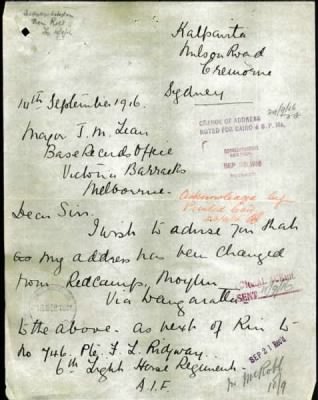 Kalpanta
Milson Road
Cremorne
Sydney
14th September 1916.
CHANGE OF ADDRESS
NOTED FOR CAIRO & B.P. Ms.
Major J. M. Lean
Base Records Office
Victoria Barracks
Melbourne.
Acknowledge by
Printed Card
Dear Sir.
I wish to advise you that
as my address has been changed
from Redcamp, Moyhu
Via Wangaratta
to the above. as next of Kin to
No 746. Pte. F. L. Ridgway.
6th Light Horse Regiment.
A.I.F.
SENT
SEP 21 1916